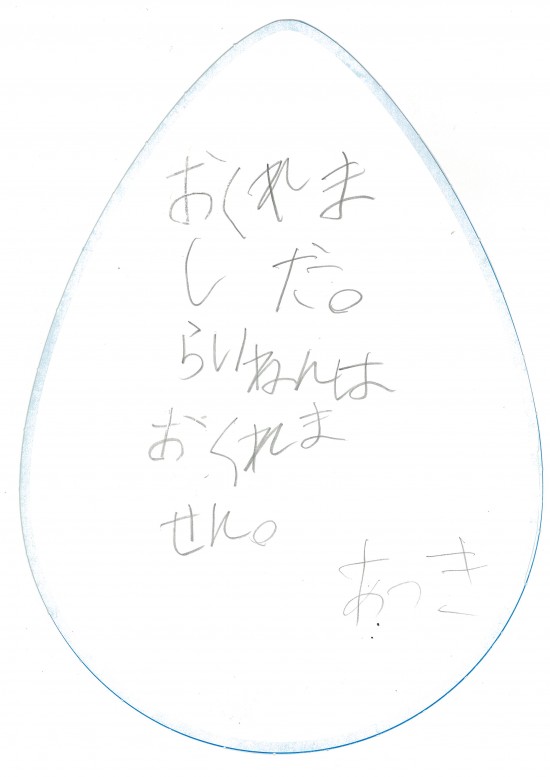 おくれま
した。
らいねんは
おくれま
せん。
あつき